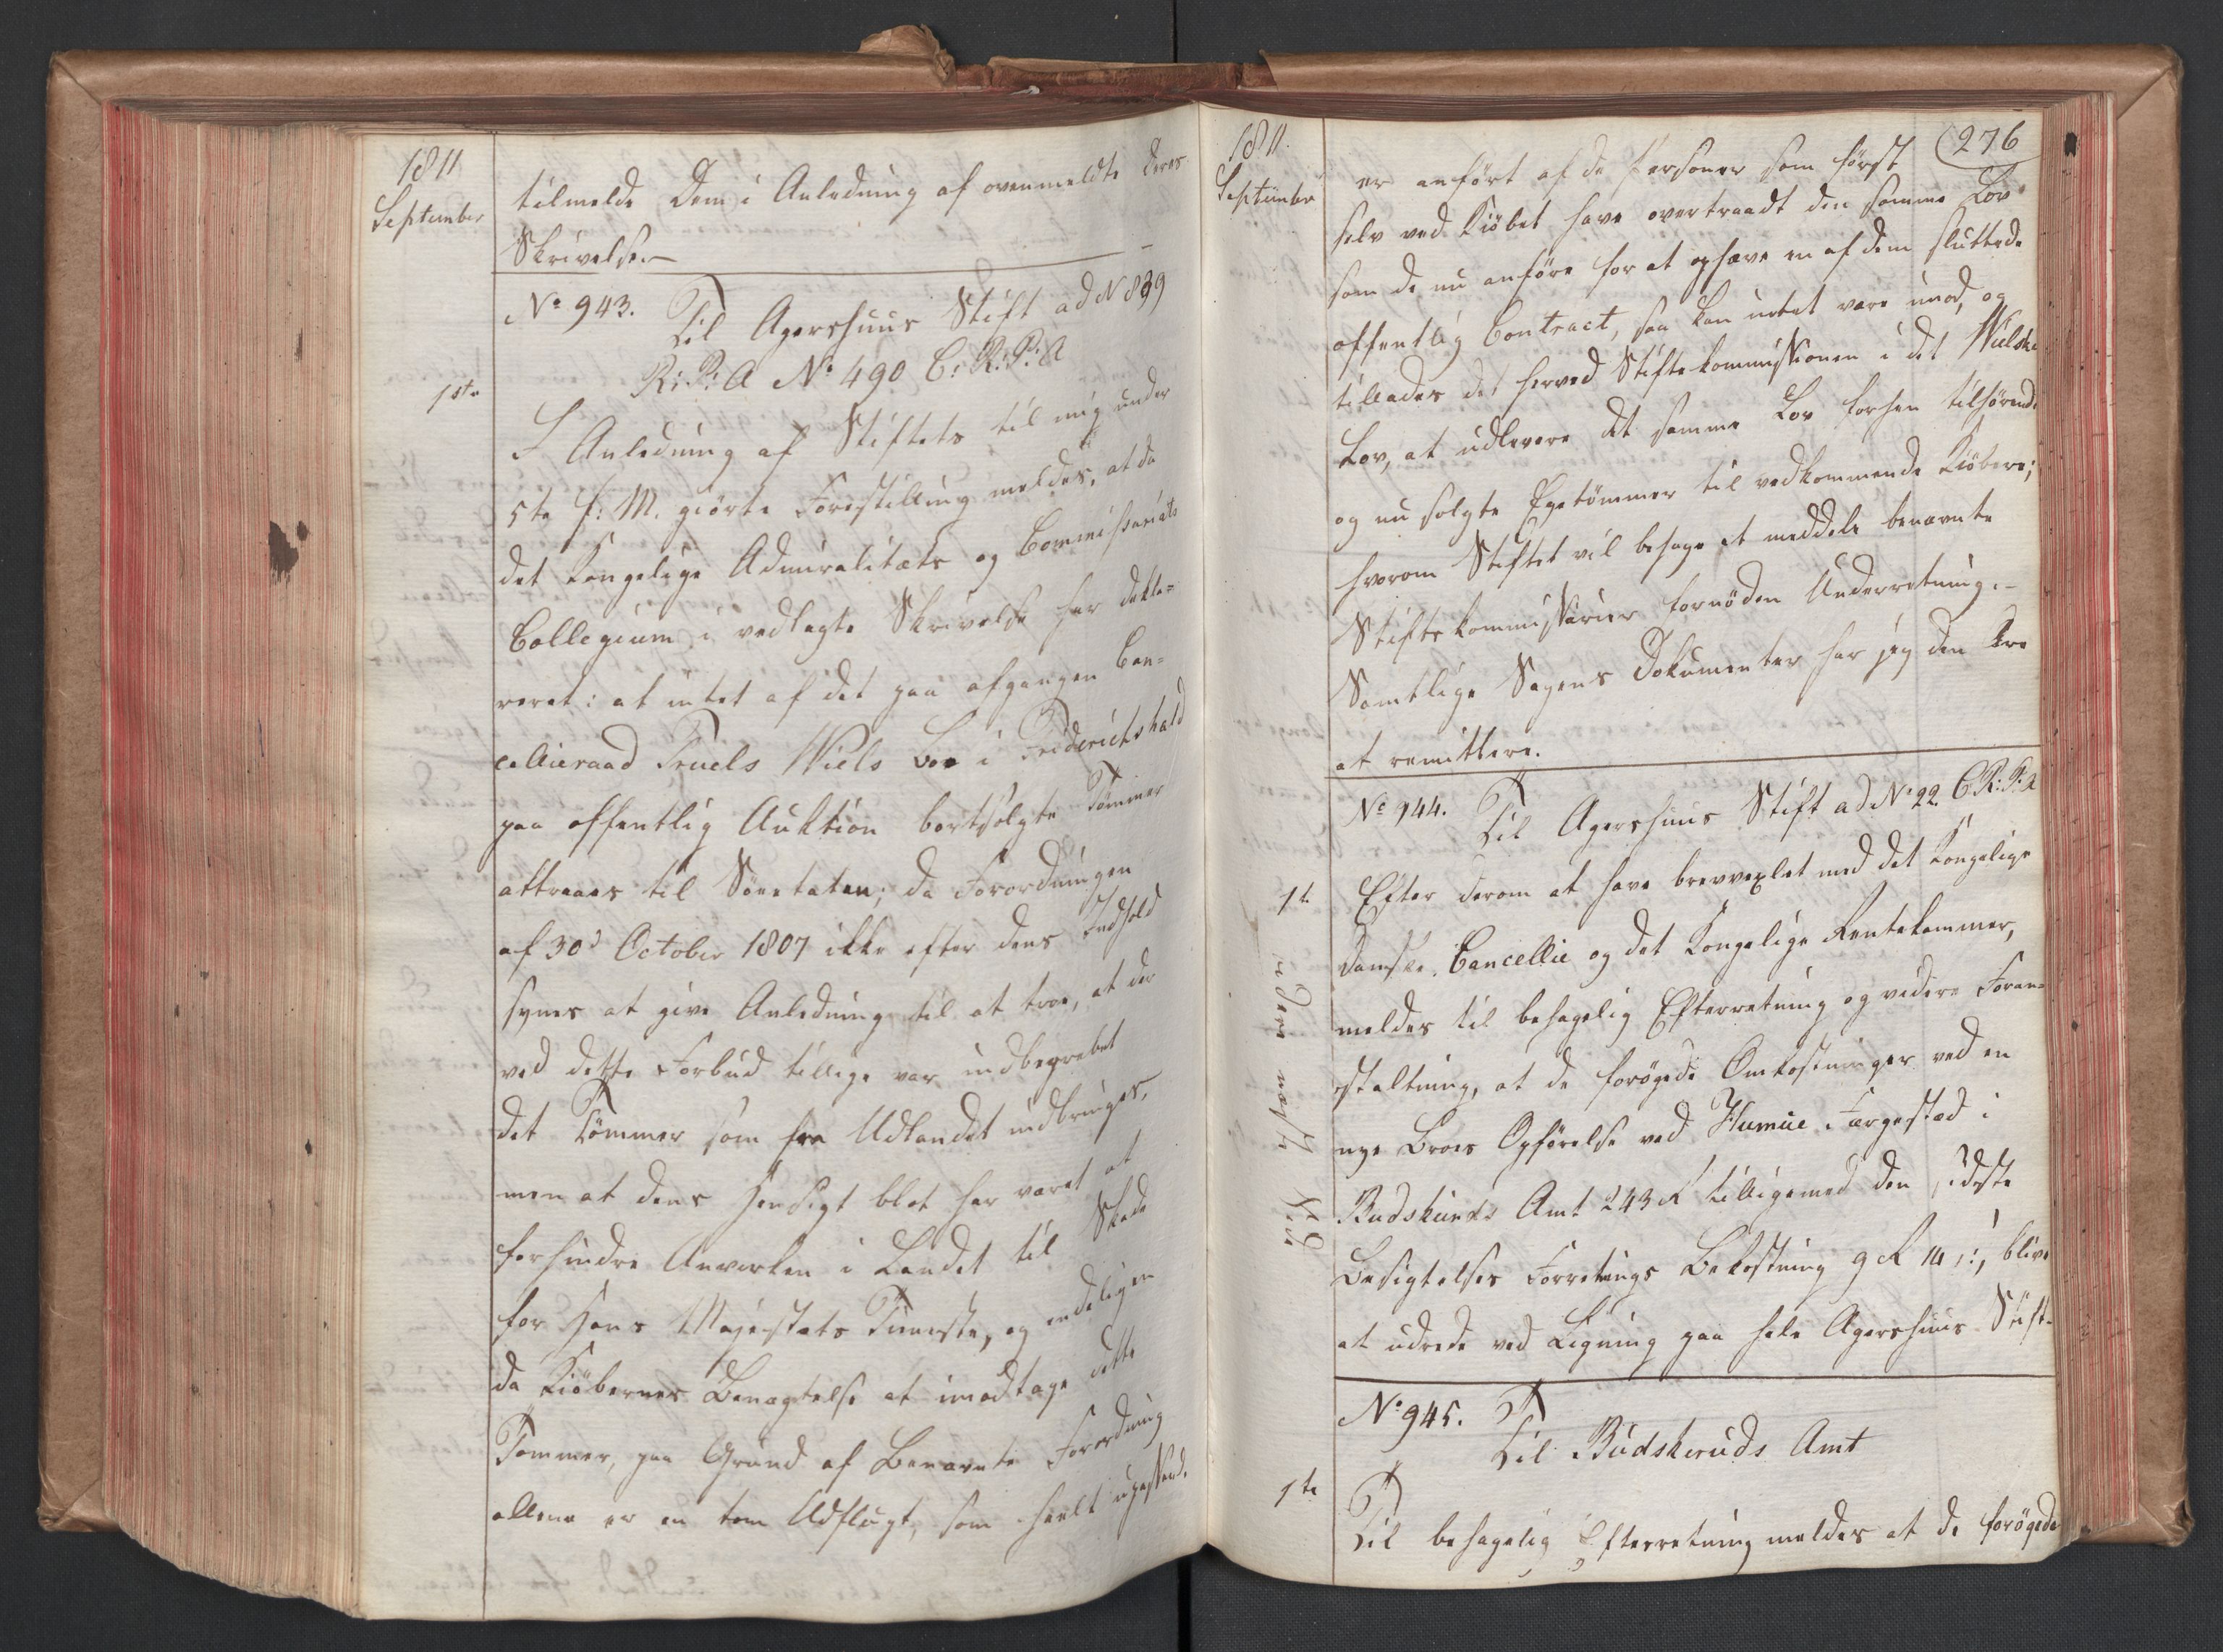 1811
September
tilmelde Dem i Anledning af ovenmeldte Deres
Skrivelse.—
No 943. Til Agershuus Stift ad No 839
R: P: A No 490 C: R: P: A
1ste
I Anledning af Stiftets til mig under
5te f: M. giorte Forestilling meldes, at da
det Kongelige Admiralitets og Commissariats
Collegium i vedlagte Skrivelse har dekla=
reret: at intet af det paa afgangen Can=
celieraad Truels Wiels Boe i Friderichshald
paa offentlig Auktion bortsolgte Tømmer
attraaes til Søeetaten; da Forordningen
af 30d October 1807 ikke efter dens Indhold
synes at give Anledning til at troe, at der
ved dette Forbud tillige var indbegrebet
det Tømmer som fra Udlandet indbringes,
men at dens Hensigt blot har været at
forhindre Anvirken i Landet til Skade
for Hans Majestæts Tieneste, og endeligen
da Kiøbernes Benægtelse at imodtage dette
Tømmer, paa Grund af Benævnte Forordning
allene er en tom Udflugt, som heelt upassende
1811.
September
276
er anført af de Personer som først
selv ved Kiøbet have overtraadt den samme Lov
som de nu anføre for at ophæve en af dem sluttede
offentlig Contract, saa kan intet være imod, og
tillades det herved Stiftskommissionen i det Wielske
Boe, at udlevere det samme Boe forhen tilhørende
og nu solgte Egetømmer til vedkommende Kiøbere;
hvorom Stiftet vil behage at meddele benævnte
Stiftskommissarier fornøden Underretning.—
Samtlige Sagens Dokumenter har jeg den Ære
at remittere.
No 944. Til Agershuus Stift ad No 22. C: R: P: A
1te
Efter derom at have brevvexlet med det Kongelige
Danske Cancellie og det Kongelige Rentekammer,
meldes til behagelig Efterretning og videre Foran=
staltning, at de forøgede Omkostninger ved en
nye Broes Opførelse ved Hurum Færgestæd i
Budskeruds Amt 243 R tilligemed den sidste
Besigtelses Forretnings Bekostning 9 R 14 s:, blive
at udrede ved Ligning paa hele Agershuus Stift.
No 945.
Til Budskeruds Amt
1te
Til behagelig Efterretning meldes at de forøgede